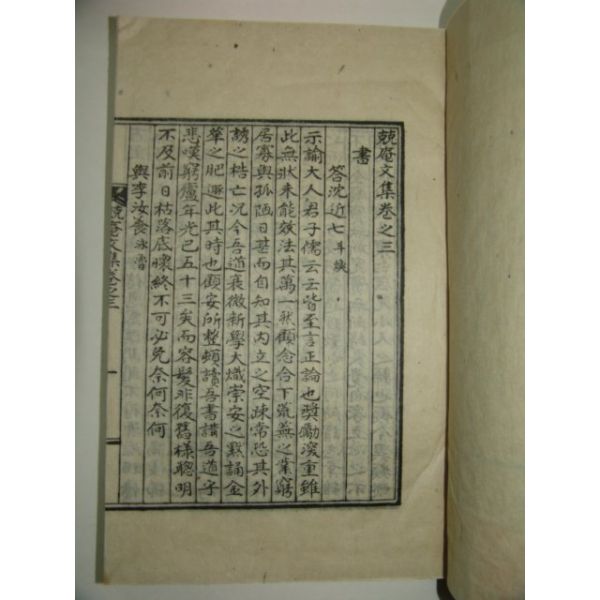 兢庵文集卷之三
書
答沈近七斗錫
示諭大人君子儒云云皆至言正論也奬勵深重雖
此無狀未能效法其萬一然顧念合下荒蕪之業窮
居寡與孤陋日甚而自知其內立之空疎常恐其外
誘之梏亡況今吾道衰微新學大熾崇安之點誦金
華之肥遯此其時也顧安所整頓讀吾書講吾道乎
悲嘆窮廬年光已五十三矣而容髮非復舊樣聰明
不及前日枯落底壞終不可必免奈何奈何
與李汝養泳書
兢庵文集卷之三
一